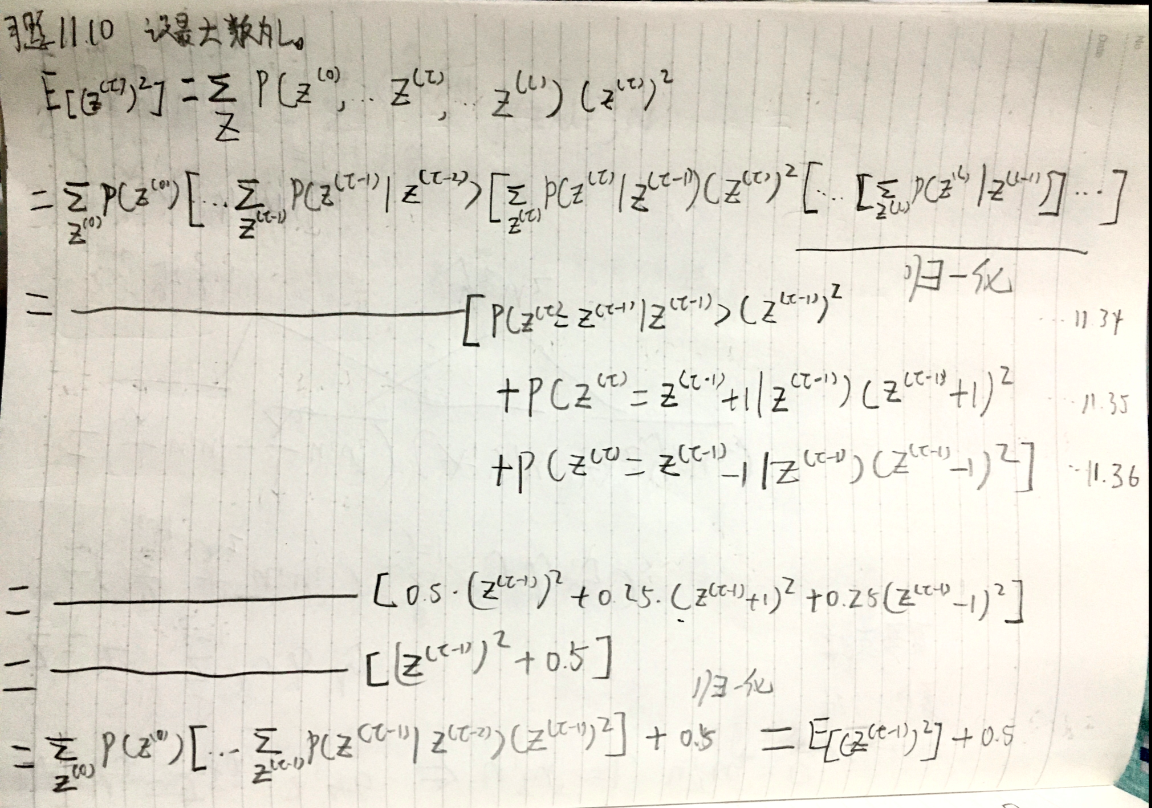 习题11.10 设最大数为L。
E[(z^(τ))^2] = Σ_Z P(z^(0), .. z^(τ), .. z^(L)) (z^(τ))^2
= Σ_{z^(0)} P(z^(0)) [ ... Σ_{z^(τ-1)} P(z^(τ-1) | z^(τ-2)) [ Σ_{z^(τ)} P(z^(τ) | z^(τ-1)) (z^(τ))^2 [ ... [ Σ_{z^(L)} P(z^(L) | z^(L-1)) ] ] ... ]
归一化
= ———— [ P(z^(τ) = z^(τ-1) | z^(τ-1)) (z^(τ-1))^2 ... 11.34
+ P(z^(τ) = z^(τ-1) +1 | z^(τ-1)) (z^(τ-1) +1)^2 ... 11.35
+ P(z^(τ) = z^(τ-1) -1 | z^(τ-1)) (z^(τ-1) -1)^2 ] ... 11.36
= ———— [ 0.5 · (z^(τ-1))^2 + 0.25 · (z^(τ-1) +1)^2 + 0.25 (z^(τ-1) -1)^2 ]
= ———— [ (z^(τ-1))^2 + 0.5 ]
归一化
= Σ_{z^(0)} P(z^(0)) [ ... Σ_{z^(τ-1)} P(z^(τ-1) | z^(τ-2)) (z^(τ-1))^2 ] + 0.5 = E[(z^(τ-1))^2] + 0.5